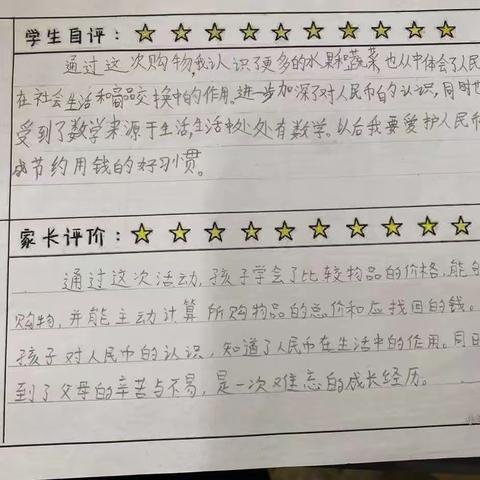 学生自评：
通过这次购物,我认识了更多的水果和蔬菜,也从中体会了人民
在社会生活和商品交换中的作用。进一步加深了对人民币的认识,同时也
受到了数学来源于生活,生活中处处有数学。以后我要爱护人民币
成节约用钱的好习惯。
家长评价：
通过这次活动,孩子学会了比较物品的价格,能
购物,并能主动计算所购物品的总价和应找回的钱。
孩子对人民币的认识,知道了人民币在生活中的作用。同
到了父母的辛苦与不易,是一次难忘的成长经历。